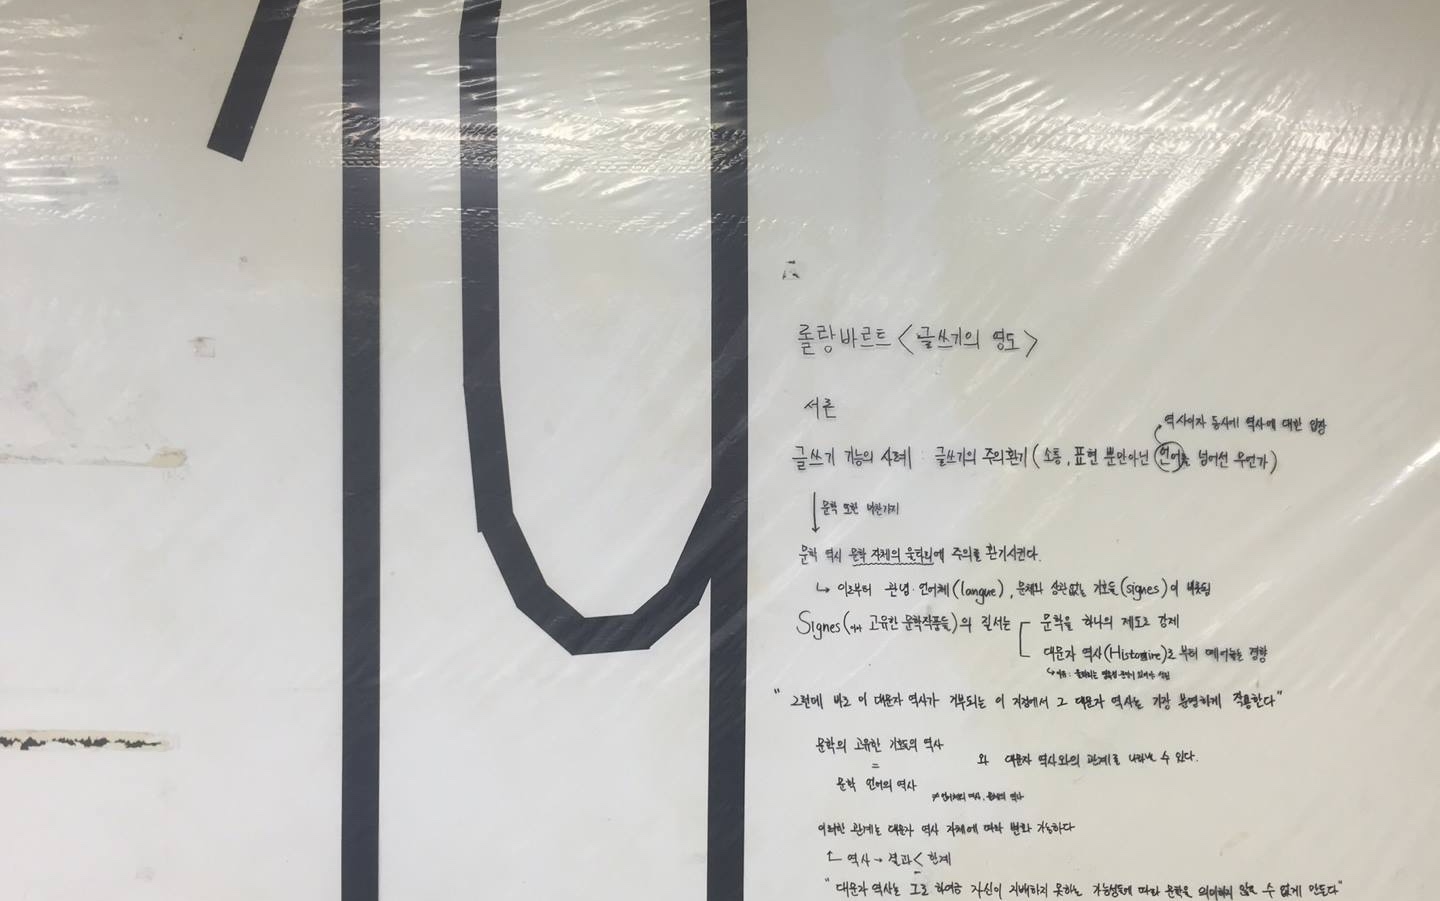 롤랑바르트 <글쓰기의 영도>
서론
역사이자 동시에 역사에 대한 입장
글쓰기 기능의 사례 : 글쓰기의 주의환기 (소통, 표현 뿐만아닌 언어를 넘어선 무언가)
문학 또한 마찬가지
문학 역시 문학 자체의 울타리에 주의를 환기시킨다.
이로부터 관념·언어체(langue), 문체와 상관없는 기호들(signes)이 비롯됨
Signes( 고유한 문학작품들)의 질서는
문학을 하나의 제도로 강제
대문자 역사(Histoire)로부터 떼어놓는 경향
"그런데 바로 이 대문자 역사가 거부되는 이 지점에서 그 대문자 역사는 가장 분명하게 작용한다"
문학의 고유한 기호들의 역사
와 대문자 역사와의 관계를 나타낼 수 있다.
=
문학 언어의 역사
≠ 언어체의 역사, 문체의 역사
이러한 관계는 대문자 역사 자체에 따라 변화 가능하다
역사 → 결과 < 한계
"대문자 역사는 그로 하여금 자신이 지배하지 못하는 가능성들에 따라 문학을 의미하지 않을 수 없게 만든다"